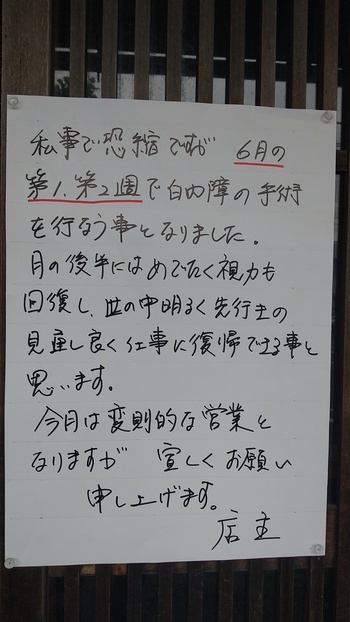 私事で恐縮ですが 6月の
第1.第2週で白内障の手術
を行なう事となりました。
月の後半にはめでたく視力も
回復し、世の中明るく先行きの
見通し良く仕事に復帰できる事と
思います。
今月は変則的な営業と
なりますが 宜しくお願い
申し上げます。
店主